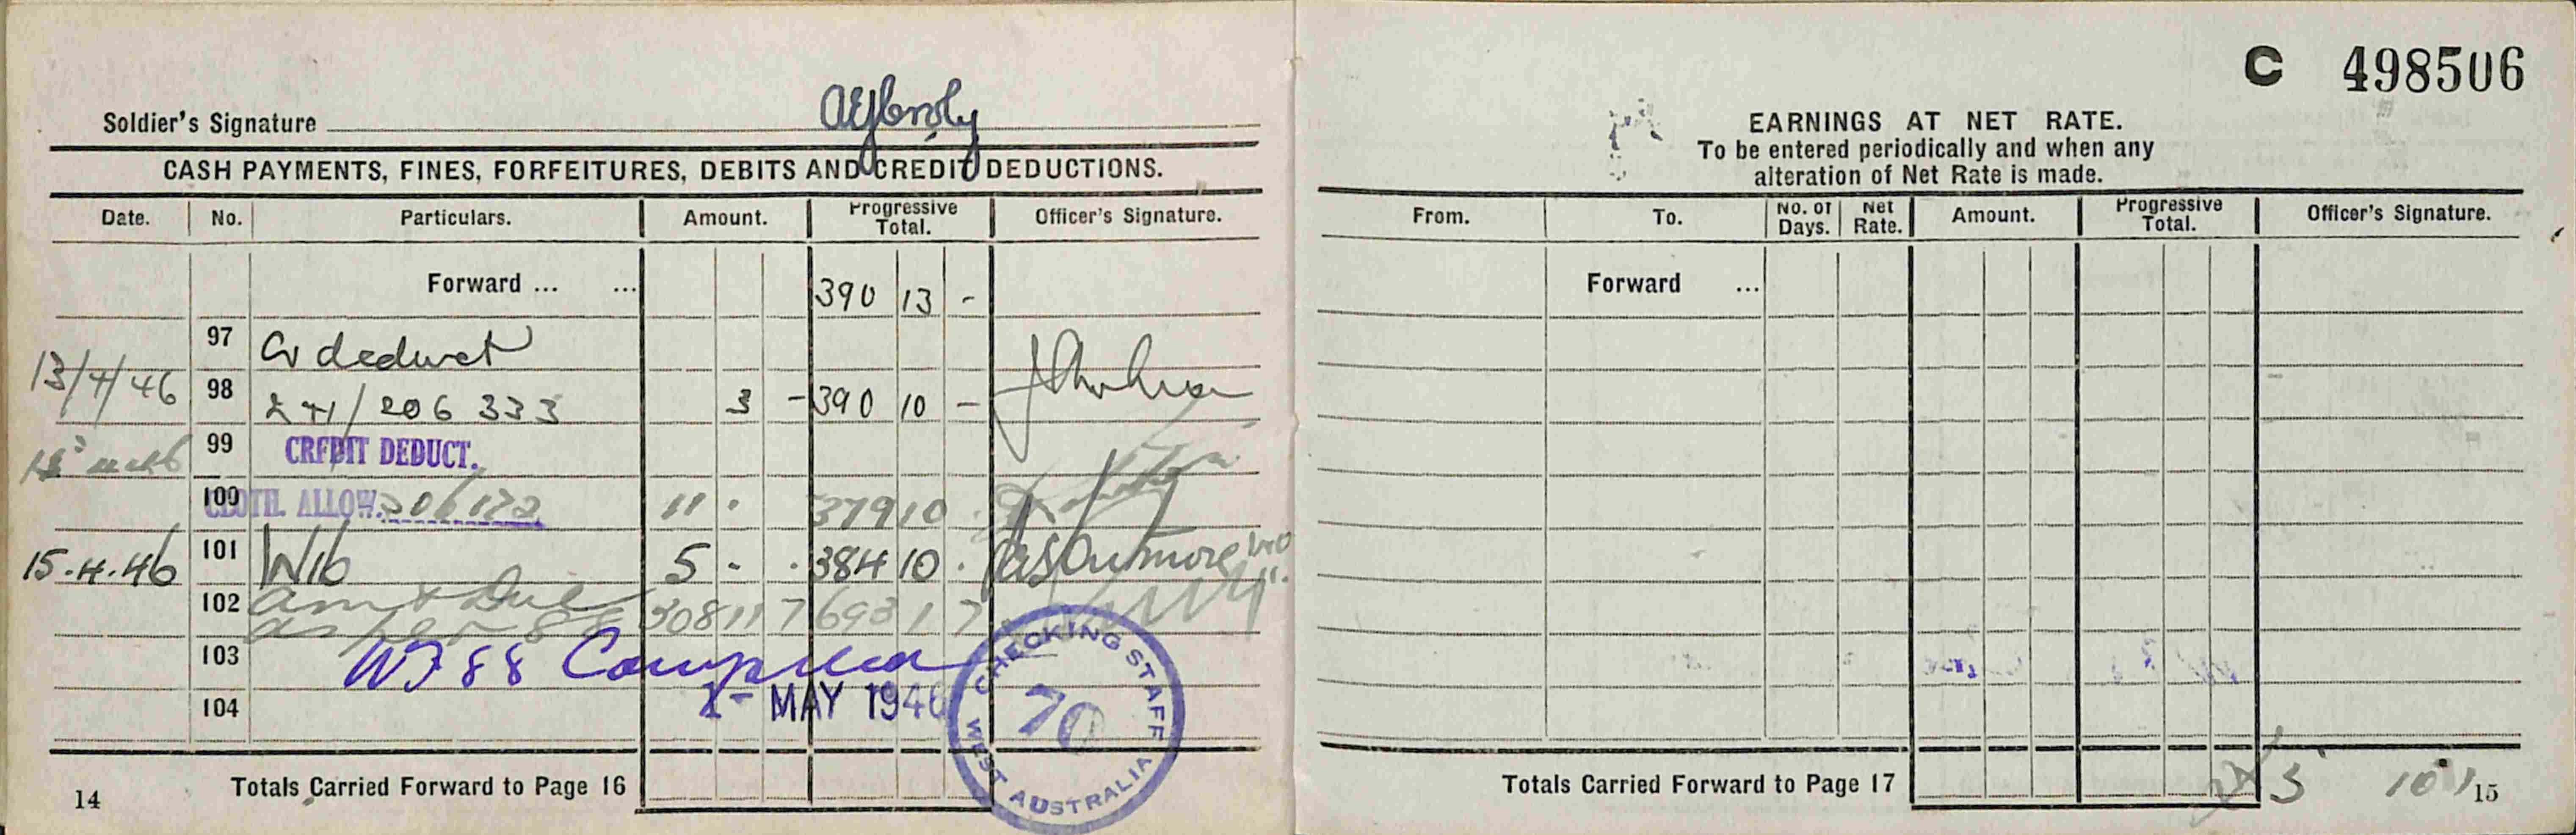 C 498506
Soldier's Signature
CASH PAYMENTS, FINES, FORFEITURES, DEBITS AND CREDIT DEDUCTIONS.
Date. No. Particulars. Amount. Progressive Total. Officer's Signature.
Forward ... ... 390 13 -
97 Cr deduct
13/4/46 98 206 333 3 - 390 10 -
99 CREDIT DEDUCT.
100 CLOTH. ALLOW. 206172 11 . 379 10 .
15.4.46 101 5 - . 384 10 .
102 Amt Due 308 11 7 693 1 7
as per 88
103 WF 88 Compiled
104 1 - MAY 1946
CHECKING STAFF
70
WEST AUSTRALIA
Totals Carried Forward to Page 16
14
EARNINGS AT NET RATE.
To be entered periodically and when any
alteration of Net Rate is made.
From. To. No. of Days. Net Rate. Amount. Progressive Total. Officer's Signature.
Forward ...
Totals Carried Forward to Page 17
15